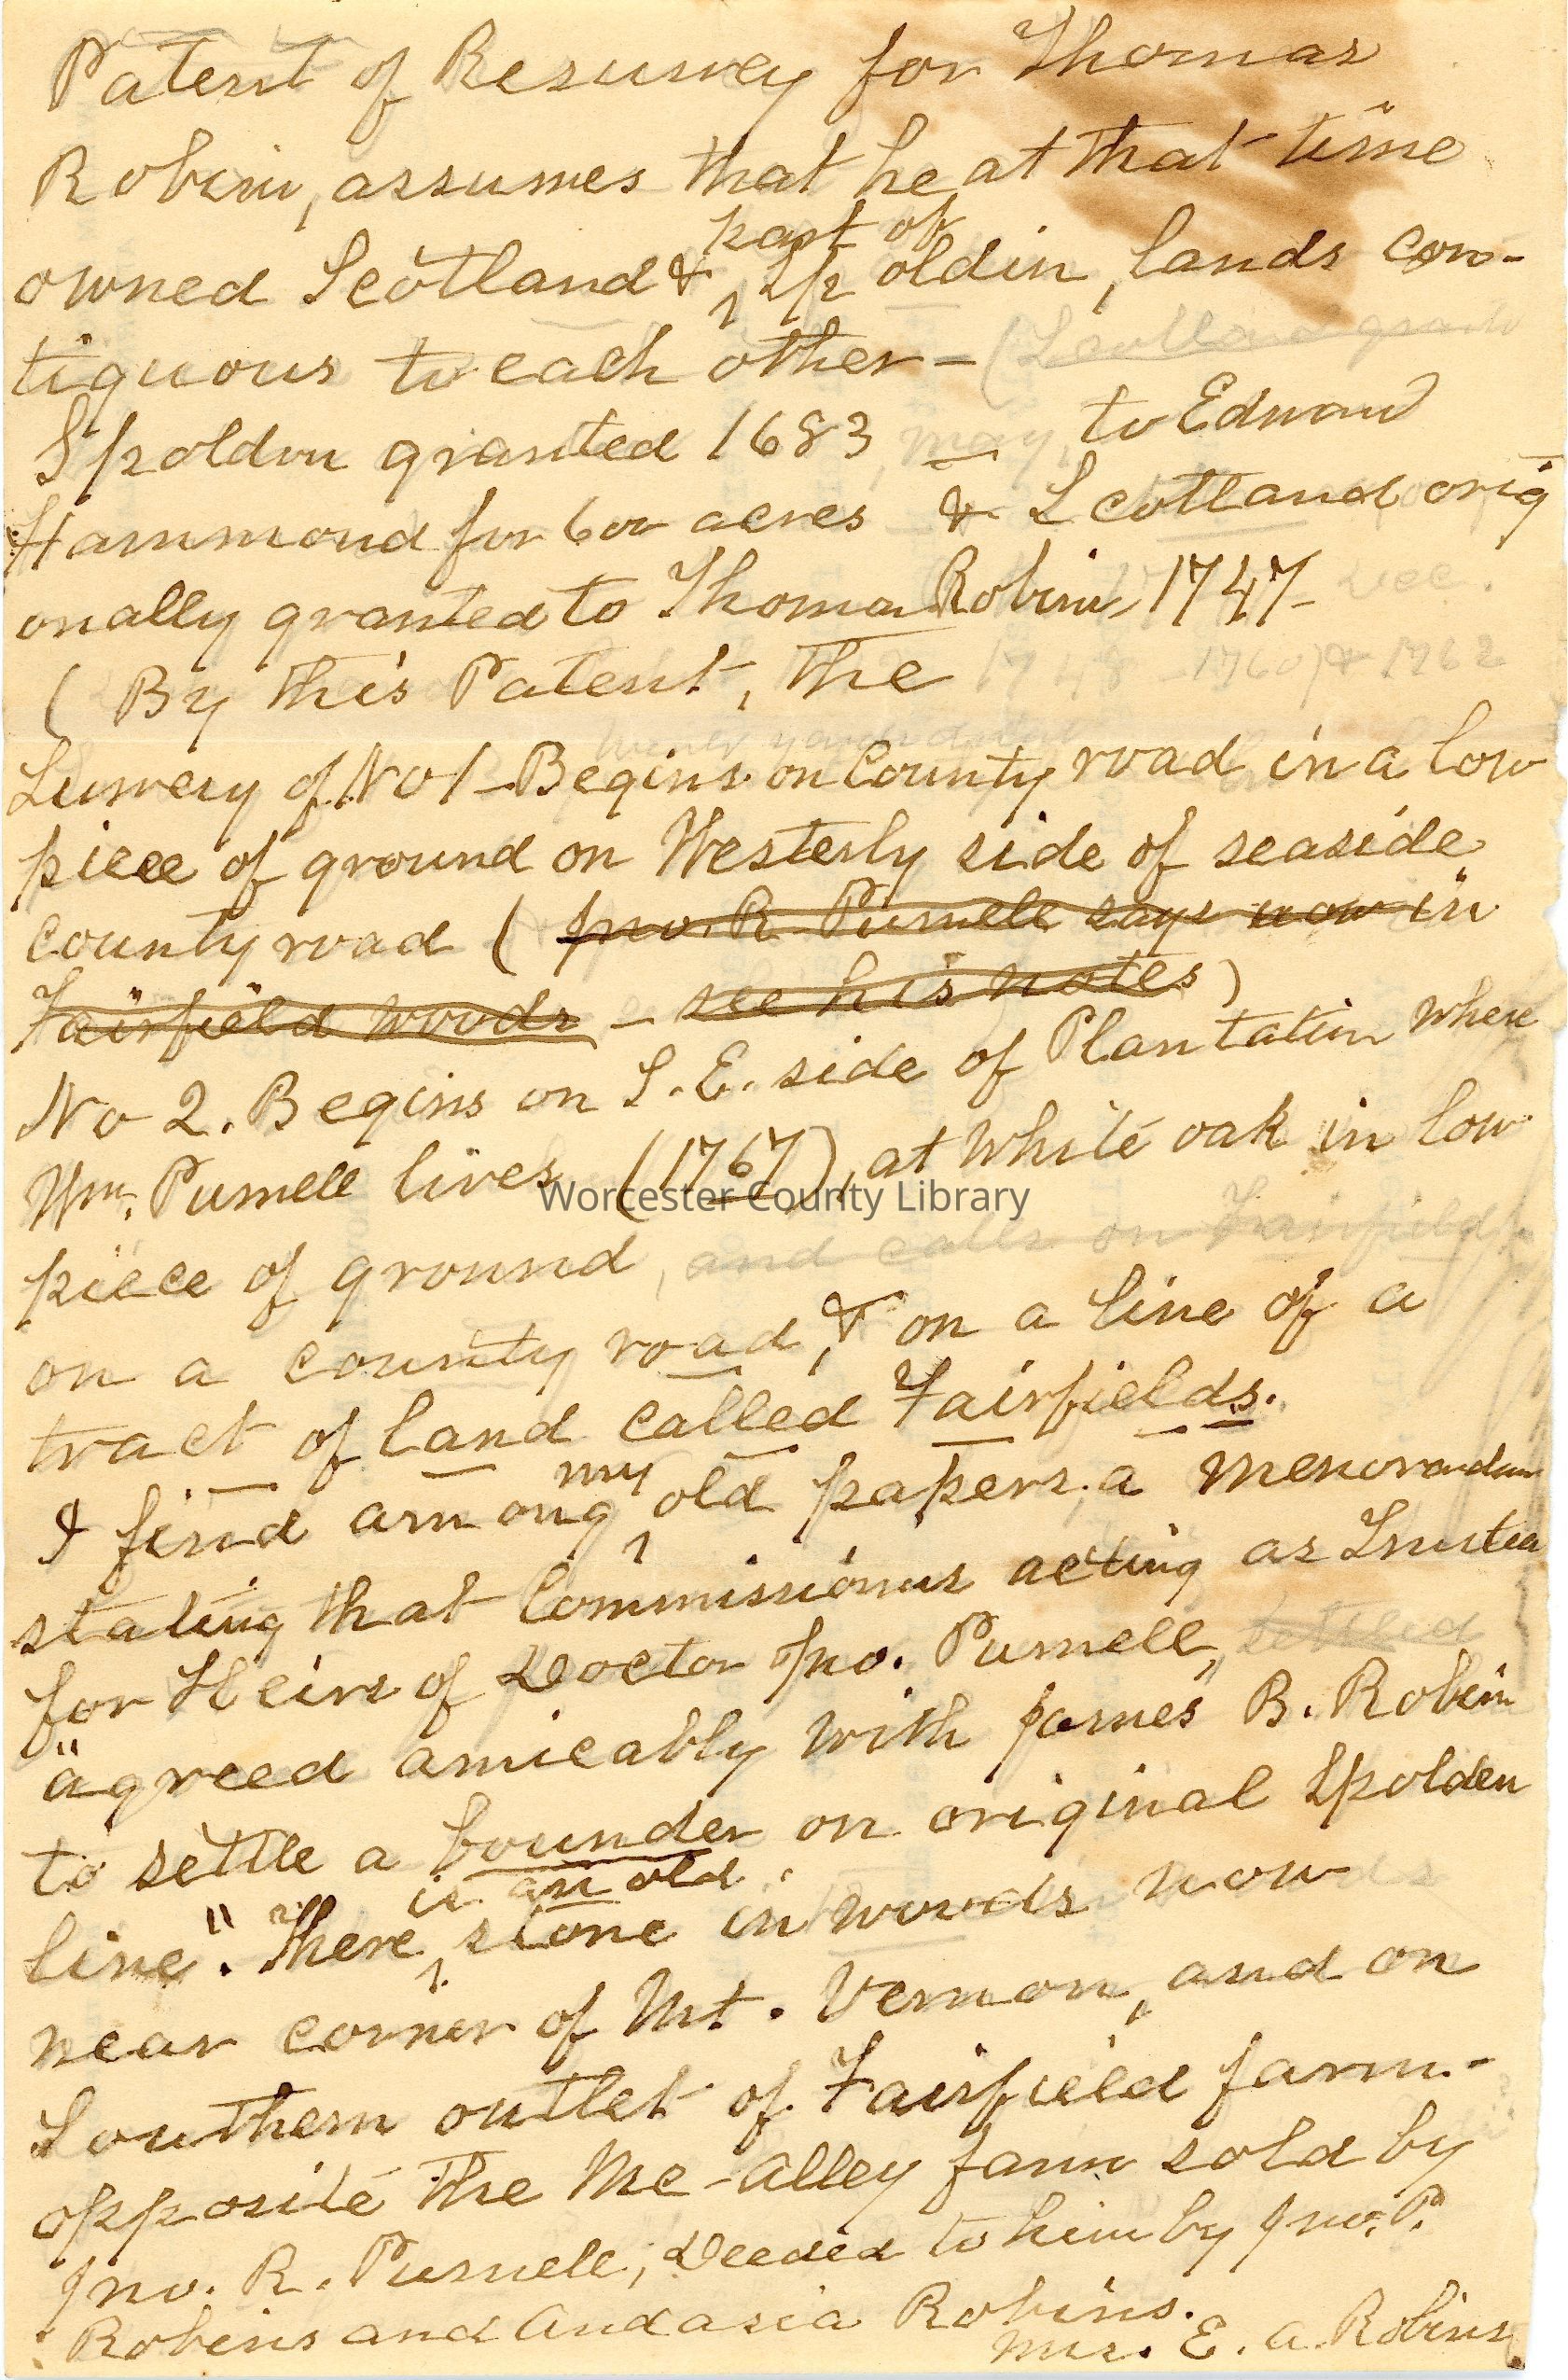 Patent of Resurvey for Thomas
Robins, assumes that he at that time
part of
owned Scotland & Spoldin, lands con-
tiguous to each other - (Scotland
Spoldon granted 1683, may, to Edward
Hammond for 600 acres & Scotland orig
onally granted to Thomas Robins, 1747- Dec.
( By this Patent, the 1748 - 1760) & 1762
Survery of No 1 - Begins on County road in a low
piece of ground on Westerly side of seaside
county road ( Jno. R. Purnell says now in
Fairfield woods - see his notes)
No 2. Begins on S. E. side of Plantation where
Wm. Purnell lives, (1767), at White oak in low
piece of ground, and calls on Fairfields
on a county road, & on a line of a
tract of land called Fairfields.
my
I find among old papers a memorandum
stating that Commissioners acting as Trustees
for Heirs of Doctor Jno. Purnell, settled
"agreed amicably with James B. Robins
to settle a bounder on original Spolden
is an old
line". There stone in woods now
near corner of Mt. Vernon, and on
Southern outlet of Fairfield farm.-
opposite the Mc-Alley farm sold by
Jno. R. Purnell, Deeded to him by Jno. P.
Robins and Andasia Robins.
Mrs. E. A. Robins
Worcester County Library